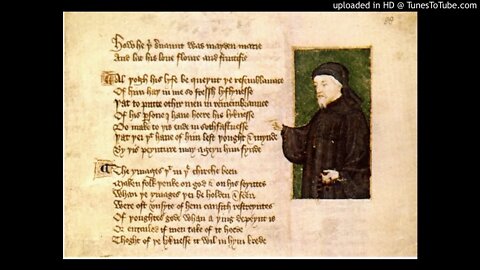 uploaded in HD @ TunesToTube.com
88
How he þͥ seruaunt was mayden marie
And lat his loue floure and fructifie
Al þogh his lyfe be queynt þe resemblaunce
Of him haþ in me so fressh lyflynesse
Þat to putte othir men in remembraunce
Of his psone I haue heere his lyknesse
Do make to þis ende in sothfastnesse
Þat þei þͭ haue of him lest þought & mynde
By þis peynture may ageyn him fynde
The ymages þͭ in þe chirche been
Maken folk þenke on god & on his seyntes
Whan þe ymages þei be holden & seen
Were oft vnsyte of hem causith restreyntes
Of þoughtes gode whan a þing depeynt is
Or entailed if men take of it heede
Thoght of þe lyknesse it wil in hym brede